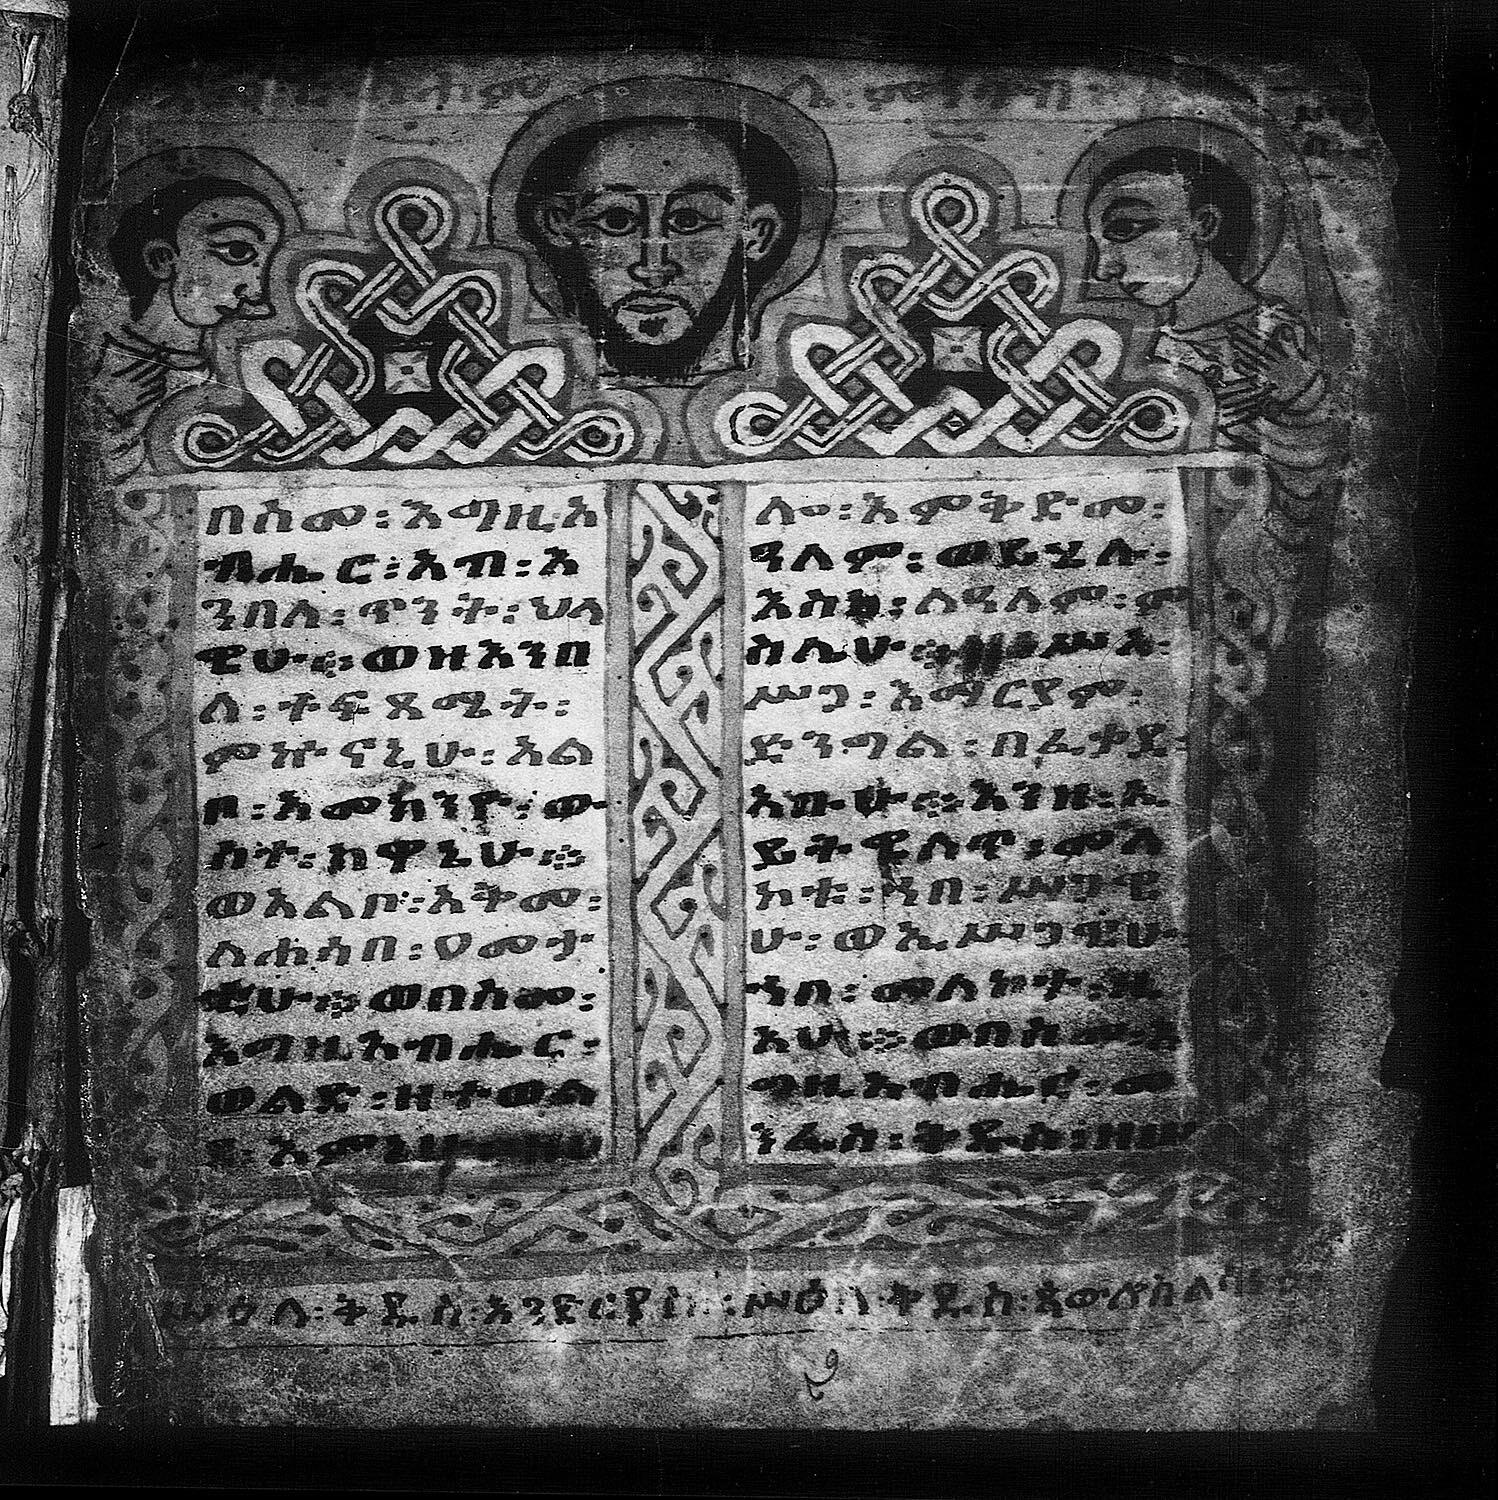 በስመ፡ እግዚአ
ብሔር፡ አብ፡ እ
ንበለ፡ ጥንት፡ ህላ
ዌሁ። ወዘእንበ
ለ፡ ተፍጻሜት፡
ምኵናኒሁ፡ አል
ቦ፡ አመክንዮ፡ ው
ስተ፡ ክዋኔሁ።
ወአልቦ፡ አቅመ፡
ለሐሳበ፡ ዐመታ
ቲሁ። ወበስመ፡
እግዚአብሔር፡
ወልድ፡ ዘተወል
ደ፡ እምኔሁ
ሎ፡ እምቅድመ፡
ዓለም፡ ወይሄሉ፡
እስከ፡ ለዓለም፡ ም
ስሌሁ። ዘነሥአ፡
ሥጋ፡ እማርያም፡
ድንግል፡ በፈቃደ፡
አቡሁ። እንዘ፡ ኢ
ይትዌለጥ፡ መለ
ኮቱ፡ ኀበ፡ ሥጋዌ
ሁ፡ ወኢሥጋዌሁ፡
ኀበ፡ መለኮት፡ ዚ
አሁ። ወበስመ፡ እ
ግዚአብሔር፡ መ
ንፈስ፡ ቅዱስ፡
ሥዕለ፡ ቅዱስ፡ እንድርያስ፡ ሥዕለ፡ ቅዱስ፡ ጳውሎስ